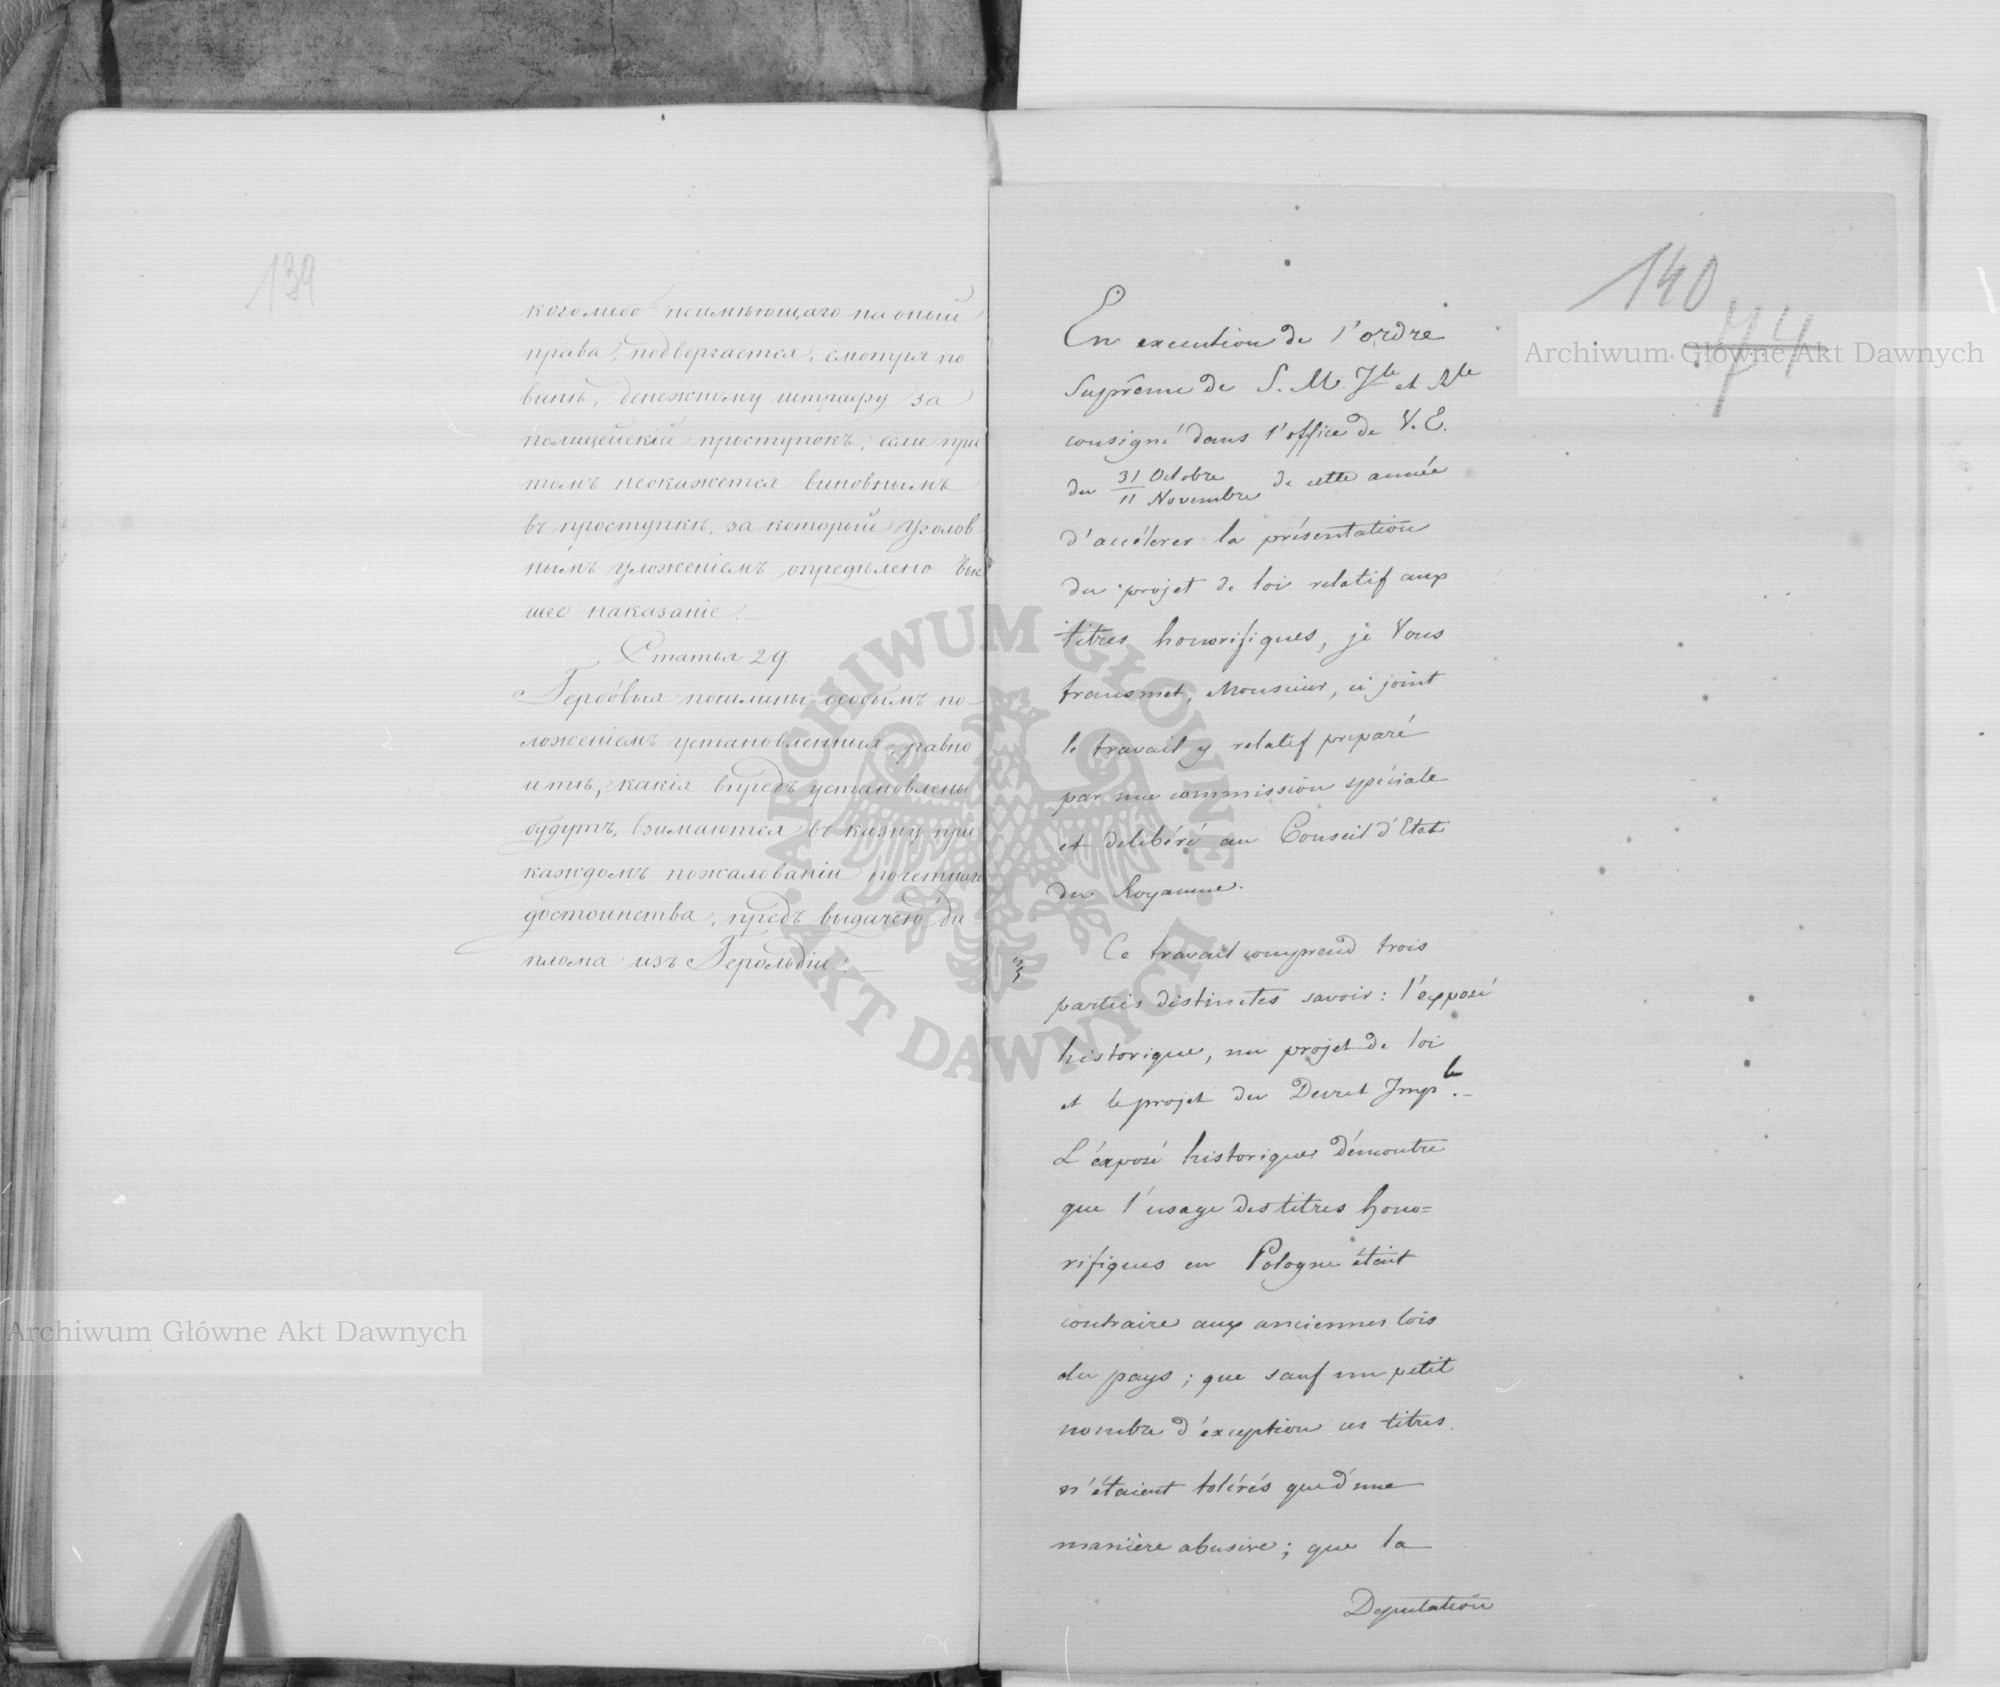 139
коголибо неимѣющаго на оный
права, подвергается, смотря по
винѣ, денежному штрафу за
полицейскій проступокъ, если при
томъ неокажется виновнымъ
въ проступкѣ, за который Уголов-
нымъ уложеніемъ опредѣлено выс-
шее наказаніе.
Статья 29
Гербовыя пошлины особымъ по-
ложеніемъ установленныя, равно
и тѣ, какія впредь установлены
будутъ, взимаются въ казну при
каждомъ пожалованіи почетнаго
достоинства, предъ выдачею ди-
плома изъ Герольдіи.
140
74
En execution de l'ordre
Suprême de S. M. Jle et Rle
consigné dans l'office de V. E.
du 31 Octobre / 11 Novembre de cette année
d'accélerer la présentation
du projet de loi relatif aux
titres honorifiques, je Vous
transmet, Monsieur, ci joint
le travail y relatif preparé
par une commission spéciale
et delibéré au Conseil d'Etat
du Royaume.
Ce travail comprend trois
parties distinctes savoir: l'exposé
historique, un projet de loi
et le projet du Decret Imple.
L'éxposé historique démontre
que l'usage des titres hono=
rifiques en Pologne était
contraire aux anciennes lois
du pays; que sauf un petit
nombre d'éxception ces titres
n'étaient tolérés que d'une
manière abusive; que la
Deputation
Archiwum Główne Akt Dawnych
Archiwum Główne Akt Dawnych
ARCHIWUM GŁÓWNE AKT DAWNYCH